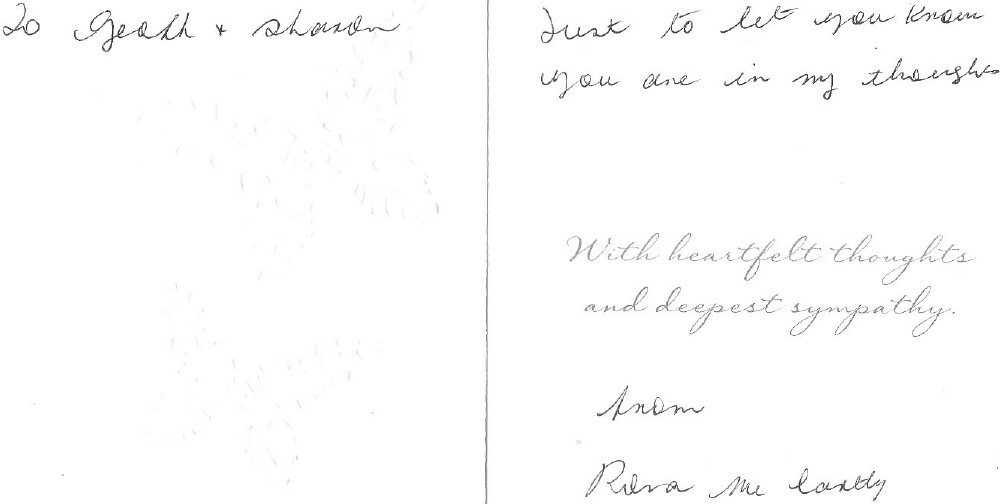 To Geoff & Sharon
Just to let you know
you are in my thoughts
With heartfelt thoughts
and deepest sympathy.
from
Mc